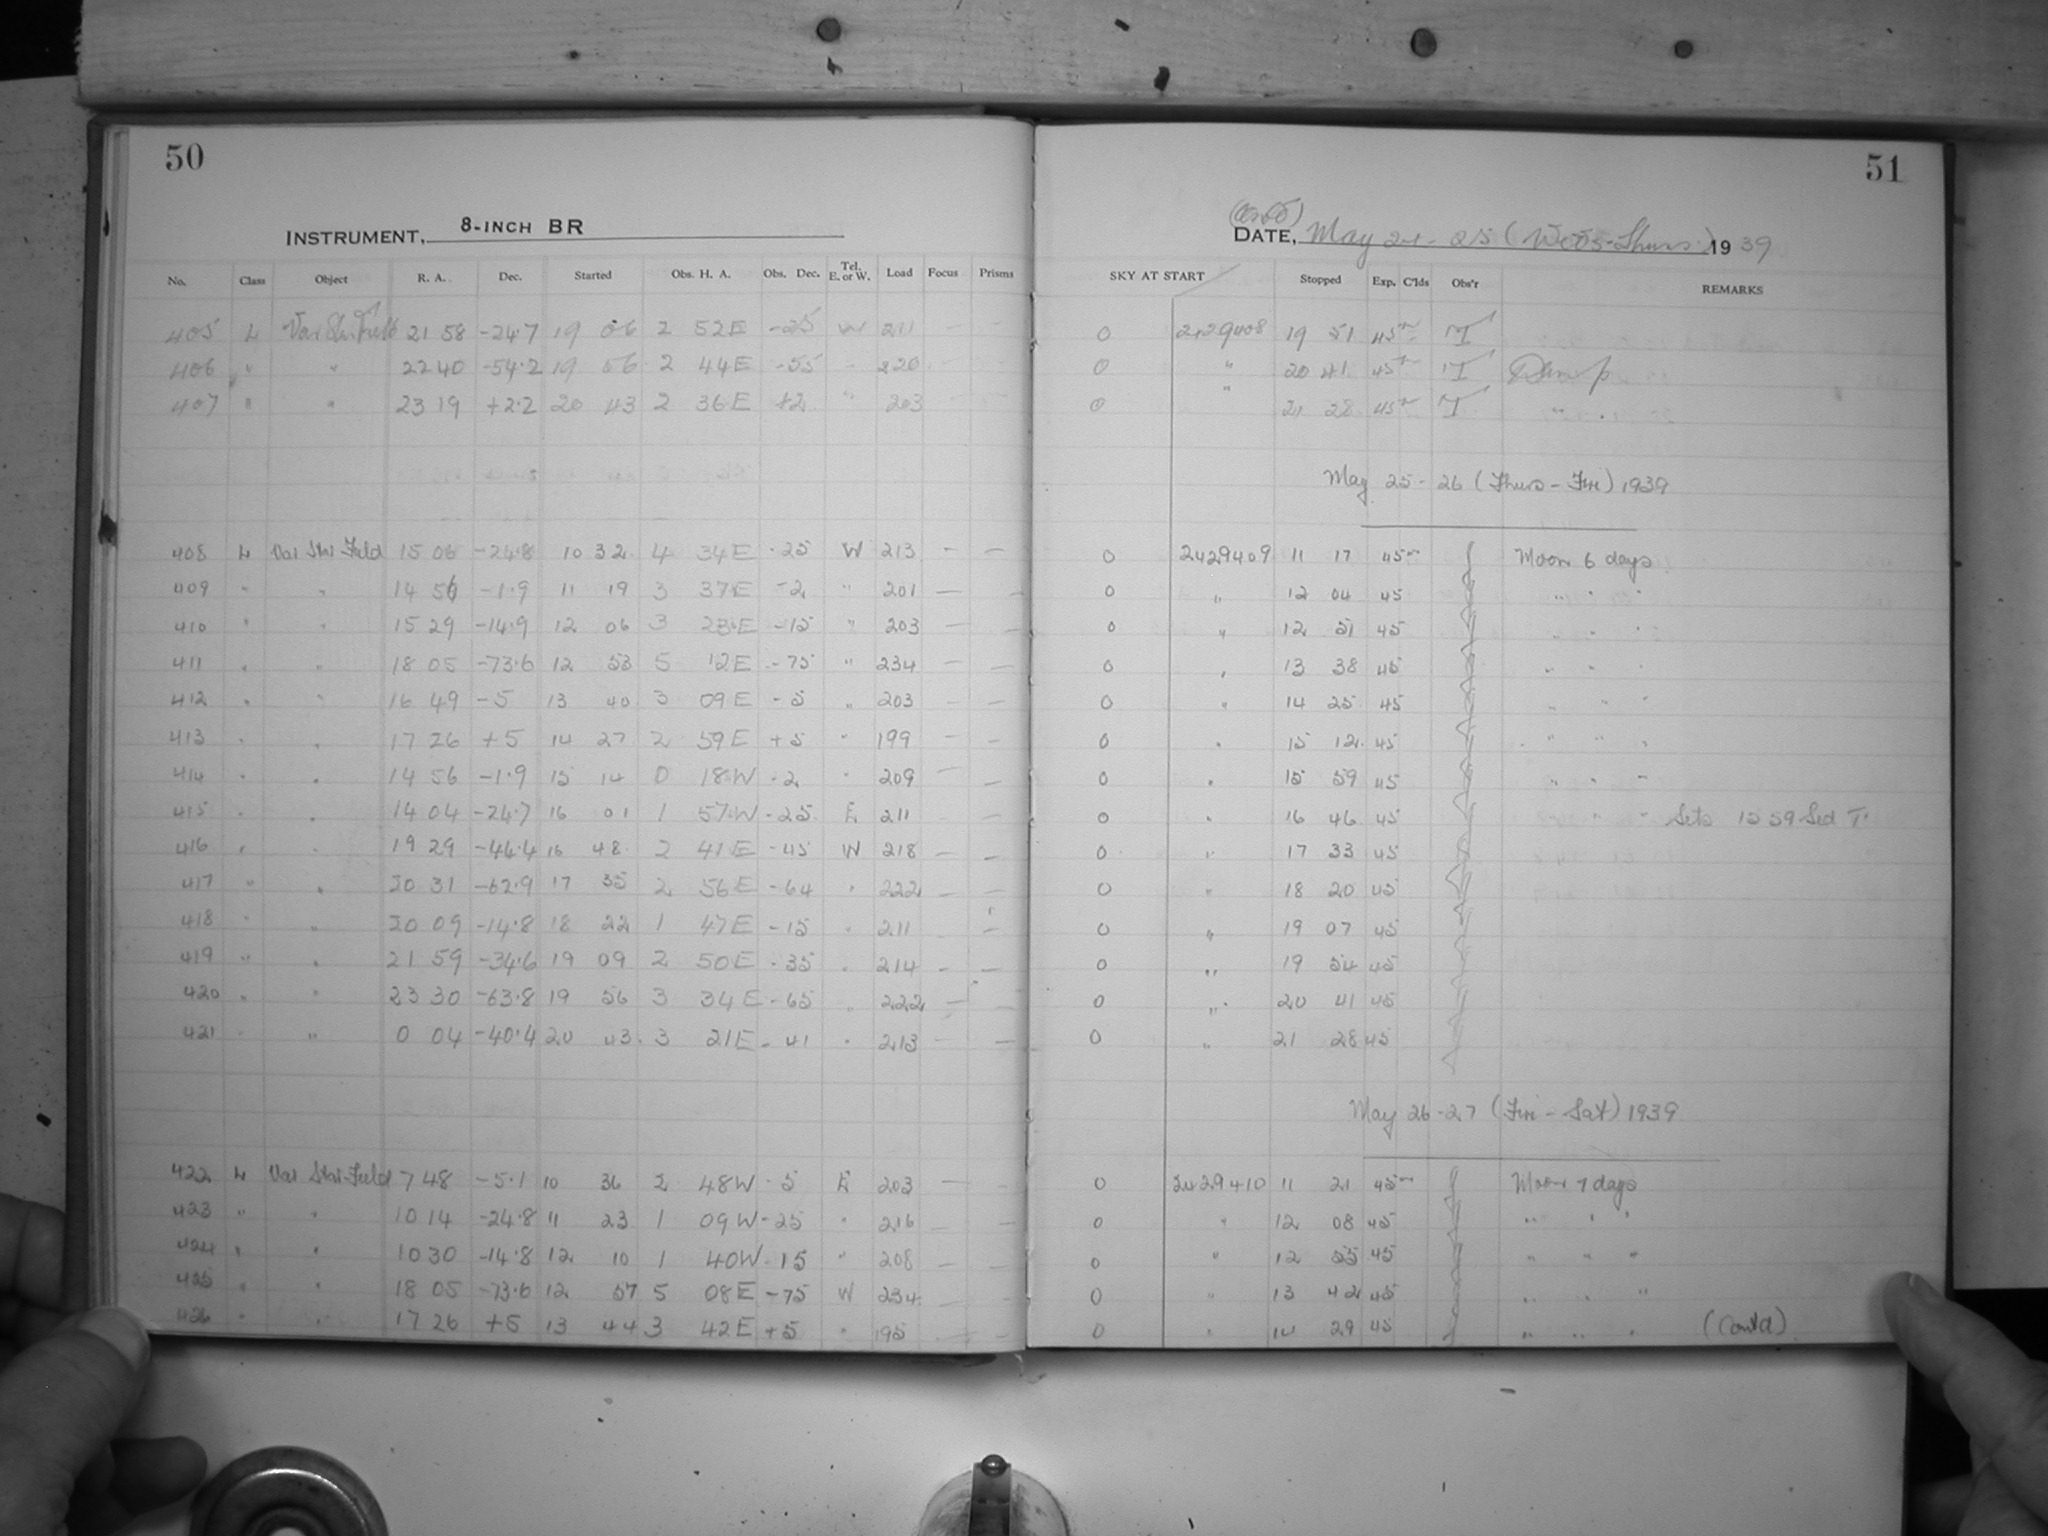 50
INSTRUMENT, 8-INCH BR
No. Class Object R. A. Dec. Started Obs. H. A. Obs. Dec. Tel. E. or W. Load Focus Prisms
405 L Var Star Field 21 58 -24.7 19 06 2 52E -25 W 211 — —
406 " " 22 40 -54.2 19 56 2 44E -55 " 220
407 " " 23 19 +2.2 20 43 2 36E +2 " 203
408 L Var Star Field 15 06 -24.8 10 32 4 34E -25 W 213 — —
409 " " 14 56 -1.9 11 19 3 37E -2 " 201 — —
410 " " 15 29 -14.9 12 06 3 23E -15 " 203 — —
411 " " 18 05 -73.6 12 53 5 12E -75 " 234 — —
412 " " 16 49 -5 13 40 3 09E -5 " 203 — —
413 " " 17 26 +5 14 27 2 59E +5 " 199 — —
414 " " 14 56 -1.9 15 14 0 18W -2 " 209 — —
415 " " 14 04 -24.7 16 01 1 57W -25 E 211 — —
416 " " 19 29 -44.4 16 48 2 41E -45 W 218 — —
417 " " 20 31 -62.9 17 35 2 56E -64 " 222 — —
418 " " 20 09 -14.8 18 22 1 47E -15 " 211 — —
419 " " 21 59 -34.6 19 09 2 50E -35 " 214 — —
420 " " 23 30 -63.8 19 56 3 34E -65 " 222 — —
421 " " 0 04 -40.4 20 43 3 21E -41 " 213 — —
422 L Var Star Field 7 48 -5.1 10 36 2 48W -5 E 203 — —
423 " " 10 14 -24.8 11 23 1 09W -25 " 216 — —
424 " " 10 30 -14.8 12 10 1 40W -15 " 208 — —
425 " " 18 05 -73.6 12 57 5 08E -75 W 234 — —
426 " " 17 26 +5 13 44 3 42E +5 " 195 — —
51
(Contd)
DATE, May 24-25 (Weds-Thurs.) 1939
SKY AT START Stopped Exp. C'lds Obs'r REMARKS
0 2429408 19 51 45m T
0 " 20 41 45m T Damp
0 " 21 28 45m T "
May 25-26 (Thurs-Fri) 1939
0 2429409 11 17 45m Moon 6 days
0 " 12 04 45 " " "
0 " 12 51 45 " " "
0 " 13 38 45 " " "
0 " 14 25 45 " " "
0 " 15 12 45 " " "
0 " 15 59 45 " " "
0 " 16 46 45 " " " Sets 15 59 Sid T.
0 " 17 33 45
0 " 18 20 45
0 " 19 07 45
0 " 19 54 45
0 " 20 41 45
0 " 21 28 45
May 26-27 (Fri-Sat) 1939
0 2429410 11 21 45m Moon 7 days
0 " 12 08 45 " " "
0 " 12 55 45 " " "
0 " 13 42 45 " " "
0 " 14 29 45 " " " (Contd)